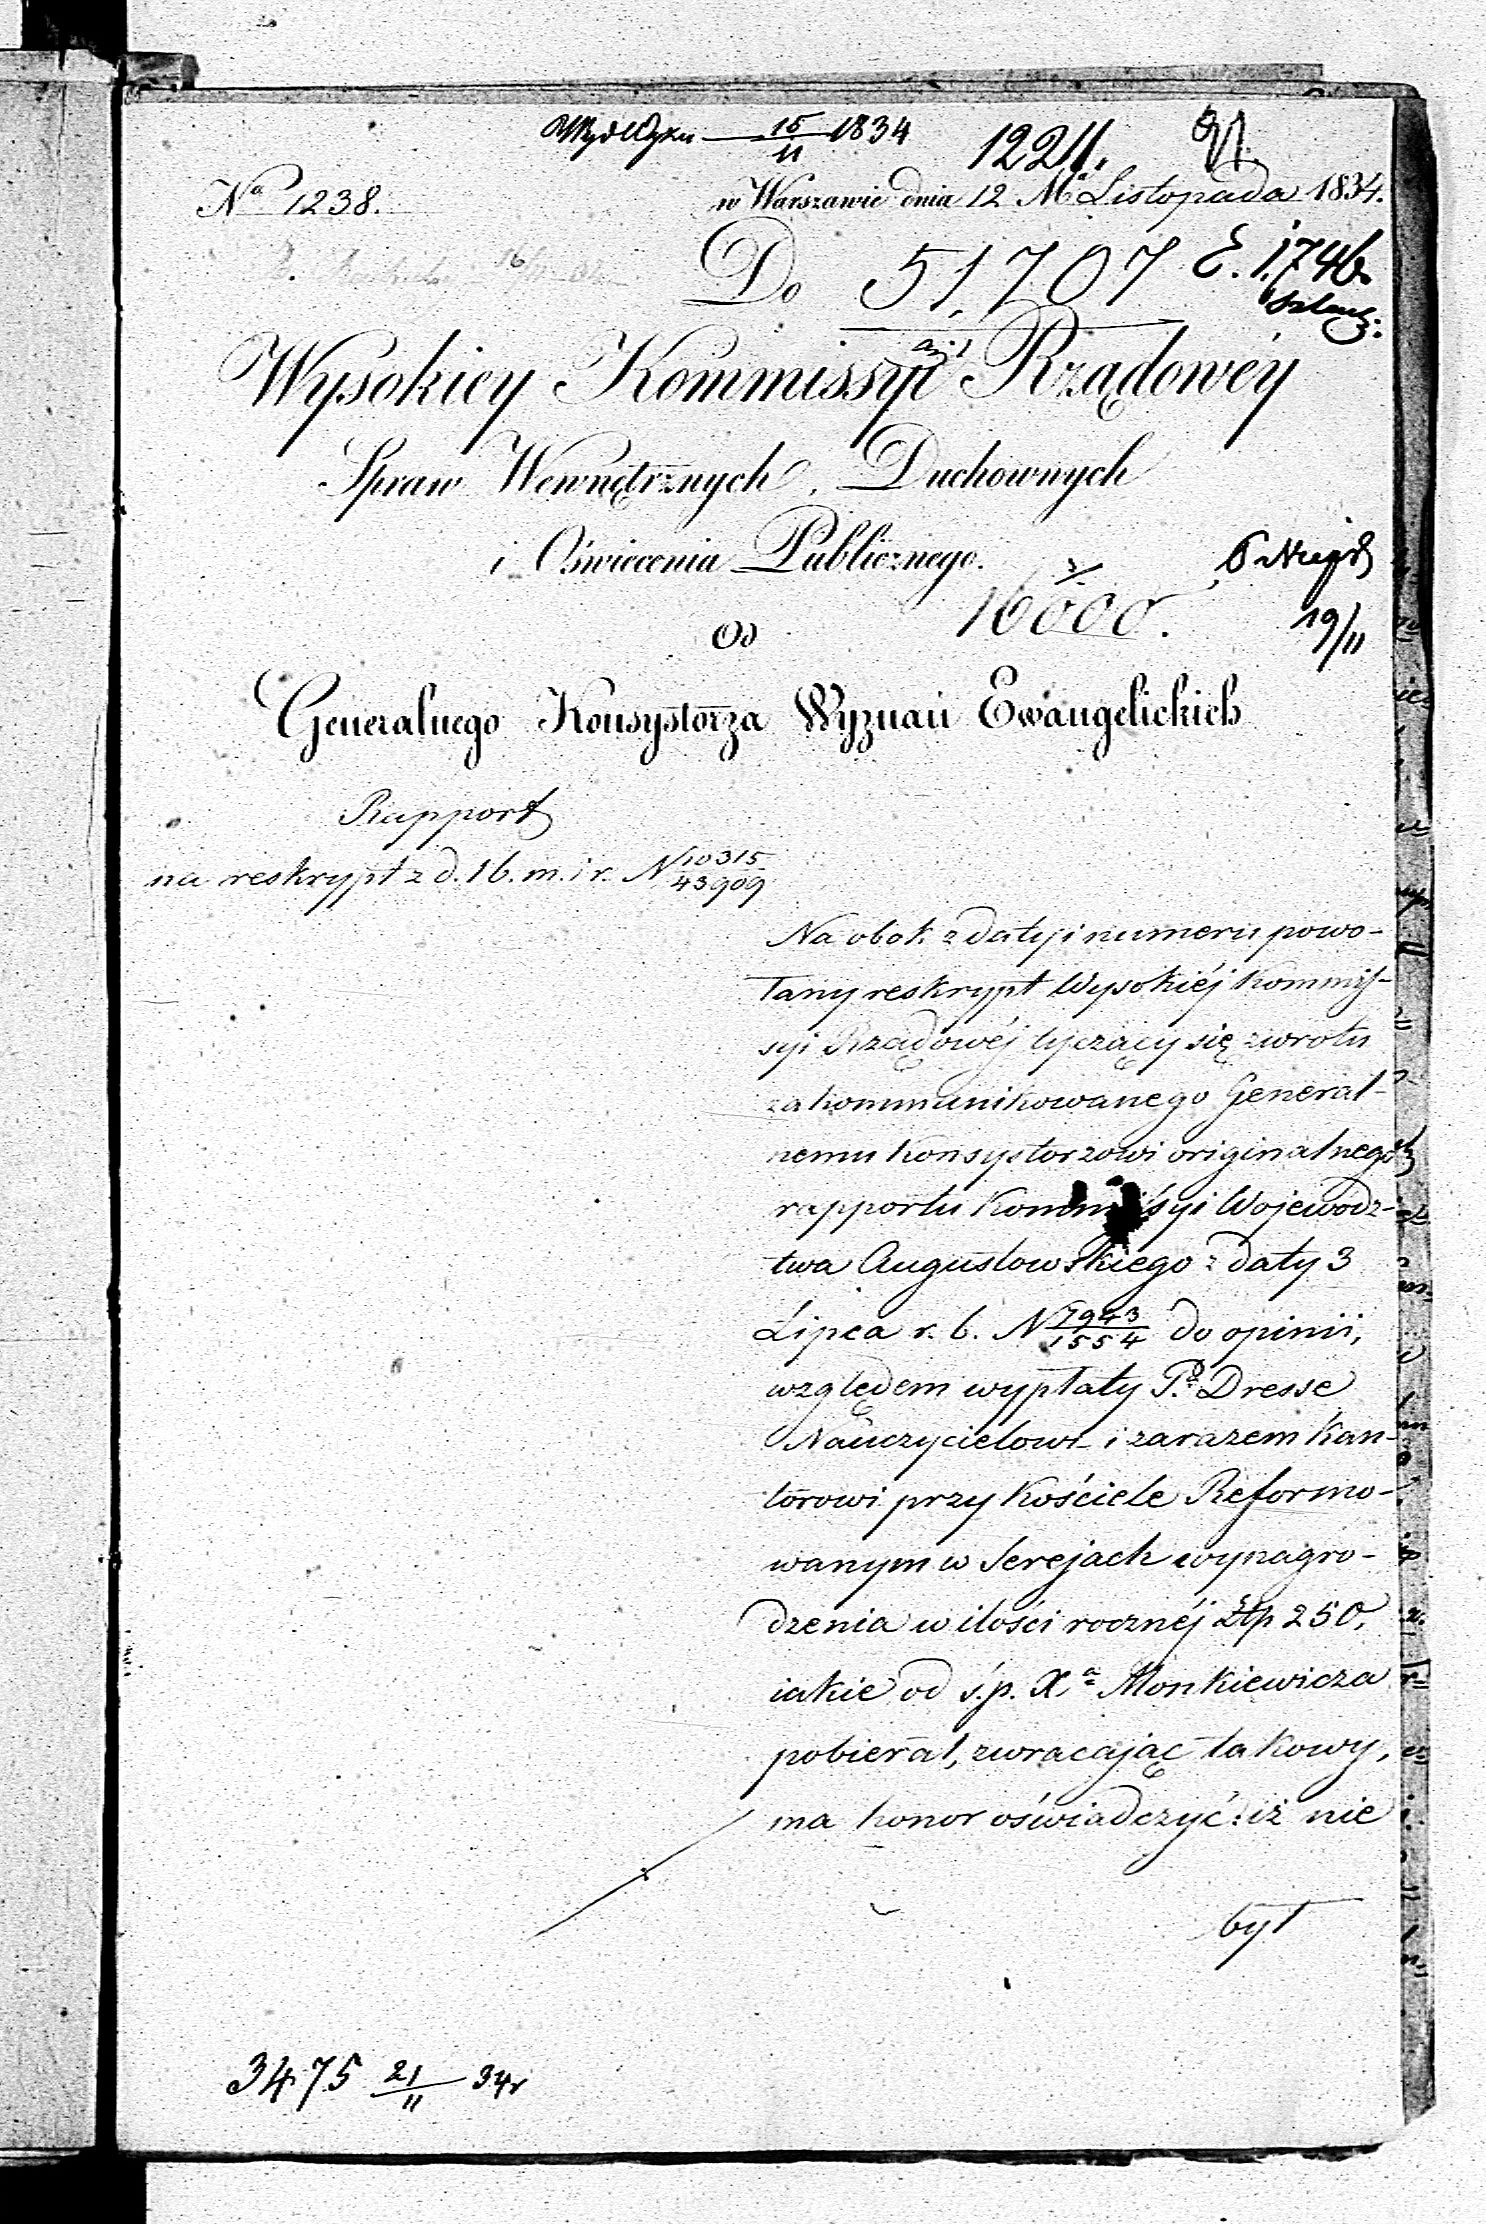 15/11 1834
1221.
91.
Nº 1238.
w Warszawie dnia 12 Mca Listopada 1834.
Do 51,707 E. 1,746.
Wysokiey Kommissyi Rządowéy
Spraw Wewnętrznych, Duchownych
i Oświecenia Publicznego.
16000.
19/11
Od
Generalnego Konsystorza Wyznań Ewangelickich
Rapport
na reskrypt z d. 16. m. i r. N 10315/43909
Na obok z daty i numeru powo-
łany reskrypt Wysokiéj Kommis-
syi Rządowéj tyczący się zwrotu
zakommunikowanego General-
nemu Konsystorzowi originalnego
rapportu Kommissyi Wojewódz-
twa Augustowskiego z daty 3
Lipca r. b. N 7943/1554 do opinii,
względem wypłaty Pa Dresse
Nauczycielowi i zarazem Kan-
torowi przy Kościele Reformo-
wanym w Serejach wynagro-
dzenia w ilości rocznéj Złp 250,
iakie od ś.p. Xa Monkiewicza
pobierał, zwracając takowy,
ma honor oświadczyć: iż nie
był
3475 21/11 34r